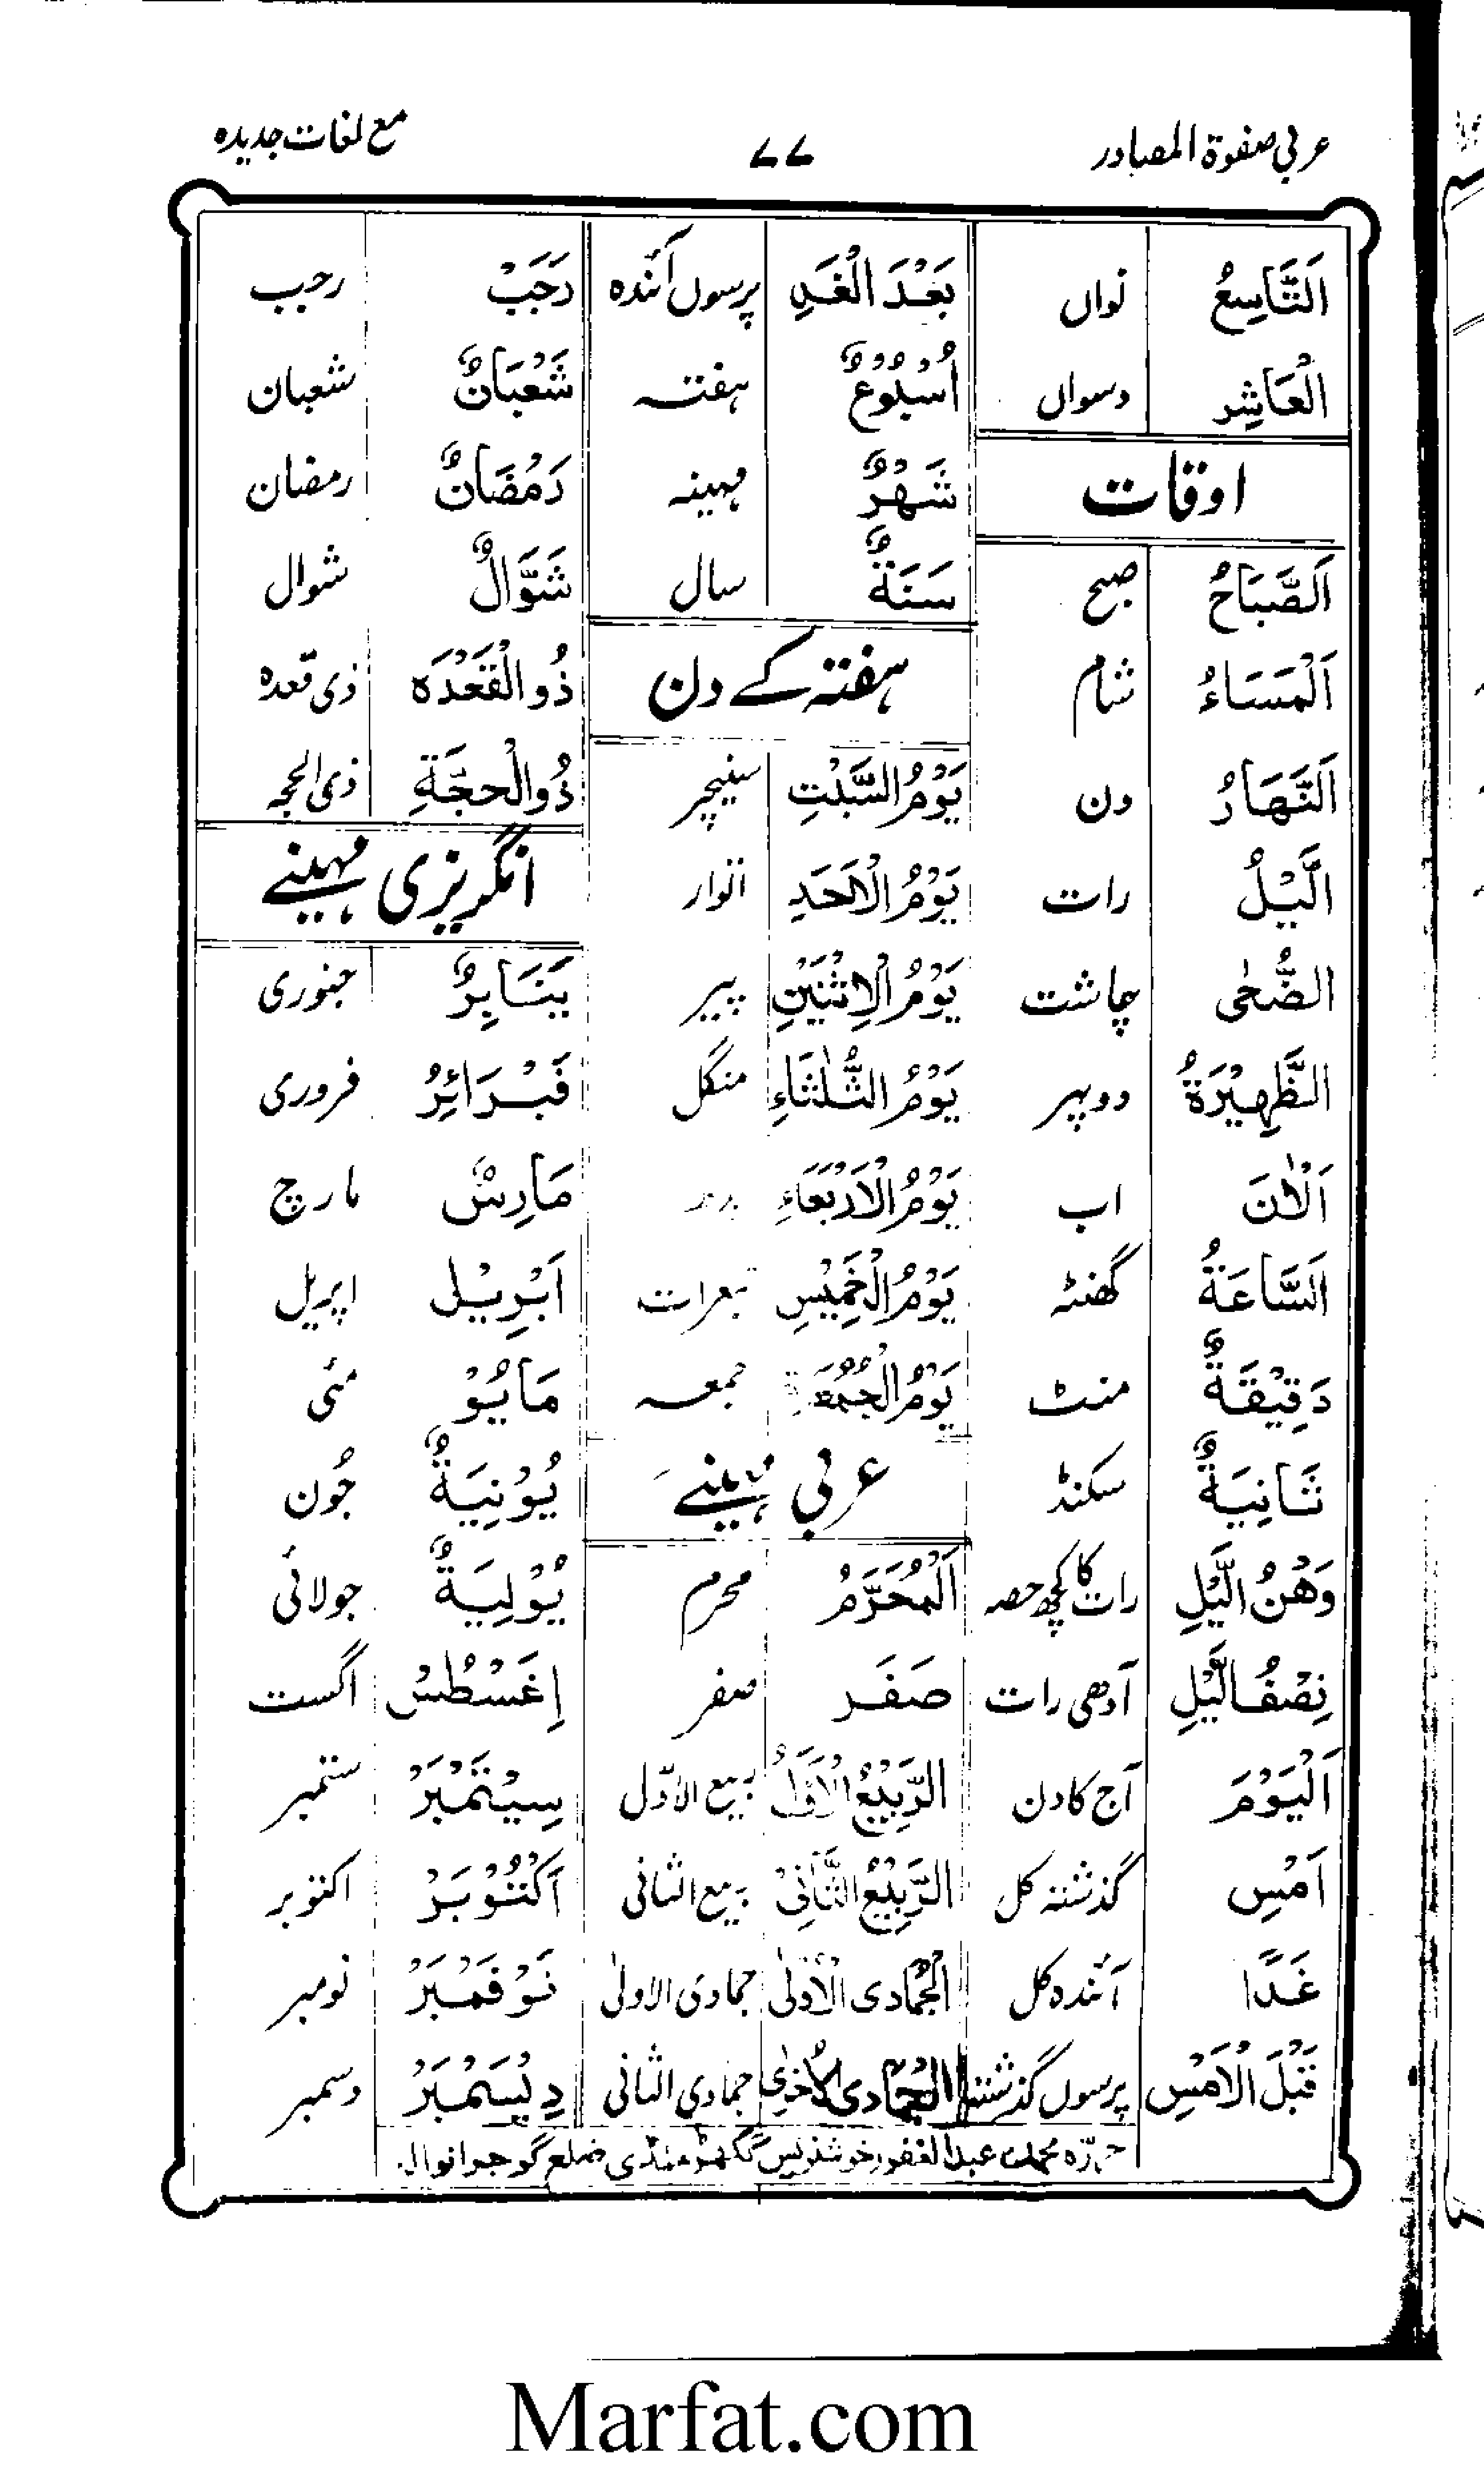 عربی صفوۃ المصادر ۷۷ مع لغات جدیدہ
اَلتَّاسِعُ نواں
الْعَاشِر دسواں
اوقات
اَلصَّبَاحُ صبح
اَلْمَسَاءُ شام
اَلنَّهَارُ دن
الَّيْلُ رات
الضُّحٰى چاشت
الظَّهِيْرَةُ دوپہر
اَلْاٰنَ اب
اَلسَّاعَةُ گھنٹہ
دَقِيْقَةٌ منٹ
ثَانِيَةٌ سکنڈ
وَهْنُ الَّيْلِ رات کا کچھ حصہ
نِصْفُ الَّيْلِ آدھی رات
اَلْيَوْمَ آج کا دن
اَمْسِ گذشتہ کل
غَدًا آئندہ کل
قَبْلَ الْاَمْسِ پرسوں گذشتہ
بَعْدَ الْغَدِ پرسوں آئندہ
اُسْبُوْعٌ ہفتہ
شَهْرٌ مہینہ
سَنَةٌ سال
ہفتہ کے دن
يَوْمُ السَّبْتِ سنیچر
يَوْمُ الْاَحَدِ اتوار
يَوْمُ الْاِثْنَيْنِ پیر
يَوْمُ الثُّلٰثَاءِ منگل
يَوْمُ الْاَرْبَعَاءِ
يَوْمُ الْخَمِيْسِ جمعرات
يَوْمُ الْجُمُعَةِ جمعہ
عربی مہینے
اَلْمُحَرَّمُ محرم
صَفَر صفر
الرَّبِيْعُ الْاَوَّلُ ربیع الاوّل
الرَّبِيْعُ الثَّانِیْ ربیع الثانی
الْجُمَادی الْاُوْلٰی جمادی الاولیٰ
الْجُمَادی الْاُخْرٰی جمادی الثانی
رَجَبْ رجب
شَعْبَانٌ شعبان
رَمُضَانٌ رمضان
شَوَّالٌ شوال
ذُوالْقَعْدَہ ذی قعدہ
ذُوالْحجَّةِ ذی الحجہ
انگریزی مہینے
يَنَايِرٌ جنوری
فَبْرَائِرُ فروری
مَارِسٌ مارچ
اَبْرِيْل اپریل
مَايُوْ مئی
يُوْنِيَةٌ جُون
يُوْلِيَةٌ جولائی
اِغَسْطُسْ اگست
سِيْتَمْبَرْ ستمبر
اَكْتُوْبَرْ اکتوبر
نَوْفَمْبَرْ نومبر
دِيْسَمْبَرْ دسمبر
حررہ محمد عبدالغفور خوشنویس گکھڑ منڈی ضلع گوجرانوالہ
Marfat.com